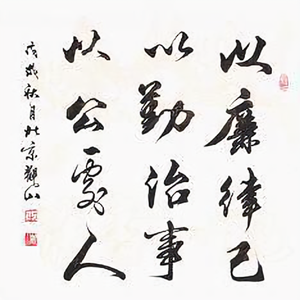 以廉律己
以勤治事
以公處人
戊戌秋月北京山